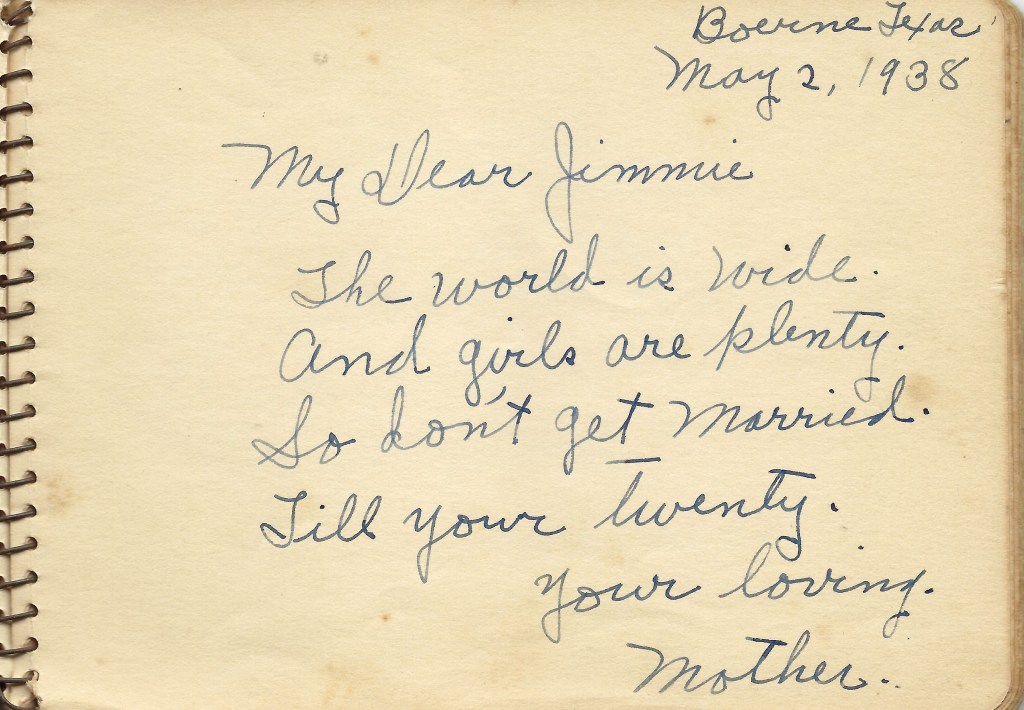 Boerne Texas
May 2, 1938
My Dear Jimmie
The world is wide.
And girls are plenty.
So don't get Married.
Till your twenty.
Your loving.
Mother..